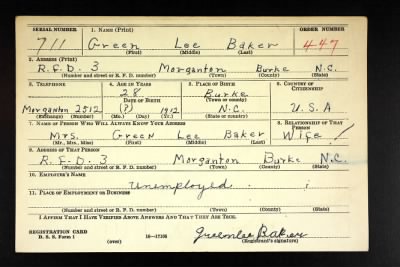 SERIAL NUMBER 1. NAME (Print) ORDER NUMBER
711 Green Lee Baker 447
(First) (Middle) (Last)
2. ADDRESS (Print)
R.F.D. 3 Morganton Burke N.C.
(Number and street or R. F. D. number) (Town) (County) (State)
3. TELEPHONE 4. AGE IN YEARS 5. PLACE OF BIRTH 6. COUNTRY OF CITIZENSHIP
28 Burke
DATE OF BIRTH (Town or county)
Morganton 2512 (?) 1912 N.C. U.S.A
(Exchange) (Number) (Mo.) (Day) (Yr.) (State or country)
7. NAME OF PERSON WHO WILL ALWAYS KNOW YOUR ADDRESS 8. RELATIONSHIP OF THAT PERSON
Mrs. Green Lee Baker Wife
(Mr., Mrs., Miss) (First) (Middle) (Last)
9. ADDRESS OF THAT PERSON
R.F.D. 3 Morganton Burke N.C.
(Number and street or R. F. D. number) (Town) (County) (State)
10. EMPLOYER'S NAME
Unemployed
11. PLACE OF EMPLOYMENT OR BUSINESS
(Number and street or R. F. D. number) (Town) (County) (State)
I AFFIRM THAT I HAVE VERIFIED ABOVE ANSWERS AND THAT THEY ARE TRUE.
REGISTRATION CARD
D. S. S. Form 1 (over) 16—17105 Greenlee Baker
(Registrant's signature)